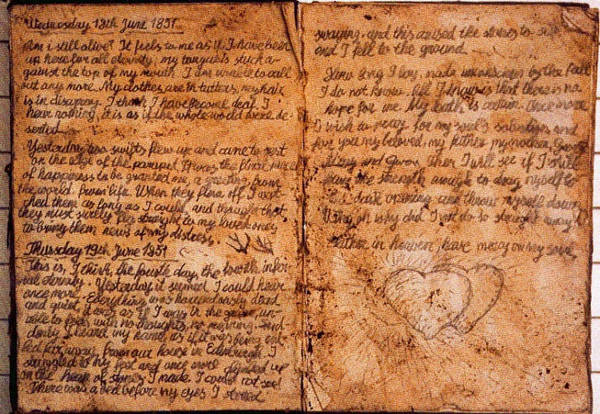 Wednesday 18th June 1851
Am i still alive? It feels to me as if I have been
up here for all eternity, my tongue is stuck a-
gainst the top of my mouth. I am unable to call
out any more. My clothes are in tatters, my hair
is in disarray. I think I have become deaf. I
hear nothing, it is as if the whole world were de-
serted.
Yesterday two swifts flew up and came to rest
on the edge of the parapet. It was the final
of happiness to be granted me, a greeting from
the world. from life. When they flew off I wat-
ched them as long as I could, and thought that
they must surely fly straight to my loved ones
to bring them news of my distress.
Thursday 19th June 1851
This is, I think, the fourth day, the fourth infer-
nal eternity. Yesterday it seemed I could hear
once more. Everything was horrendously dead
and quiet, it was as if I was in the grave, un-
able to feel, with no thoughts, no morning. Sud-
denly I heard my name, as if it was being cal-
led far away, from our house in Edinburgh. I
struggled to my feet and once more climbed up
on the heap of stones I made. I could not see!
There was a red before my eyes. I stood
swaying, and this caused the stones to
and I fell to the ground.
How long I lay, made unconscious by the fall
I do not know. All I know is that there is no
hope for me. My death is certain. Once more
I wish to pray for my soul's salvation and
for you my beloved, my father, my mother,
and Then I will see if I still
have the strength enough to drag myself to
dark opening and throw myself down.
Why, oh why did I not do so straight away!
Father in heaven, have mercy on my soul.